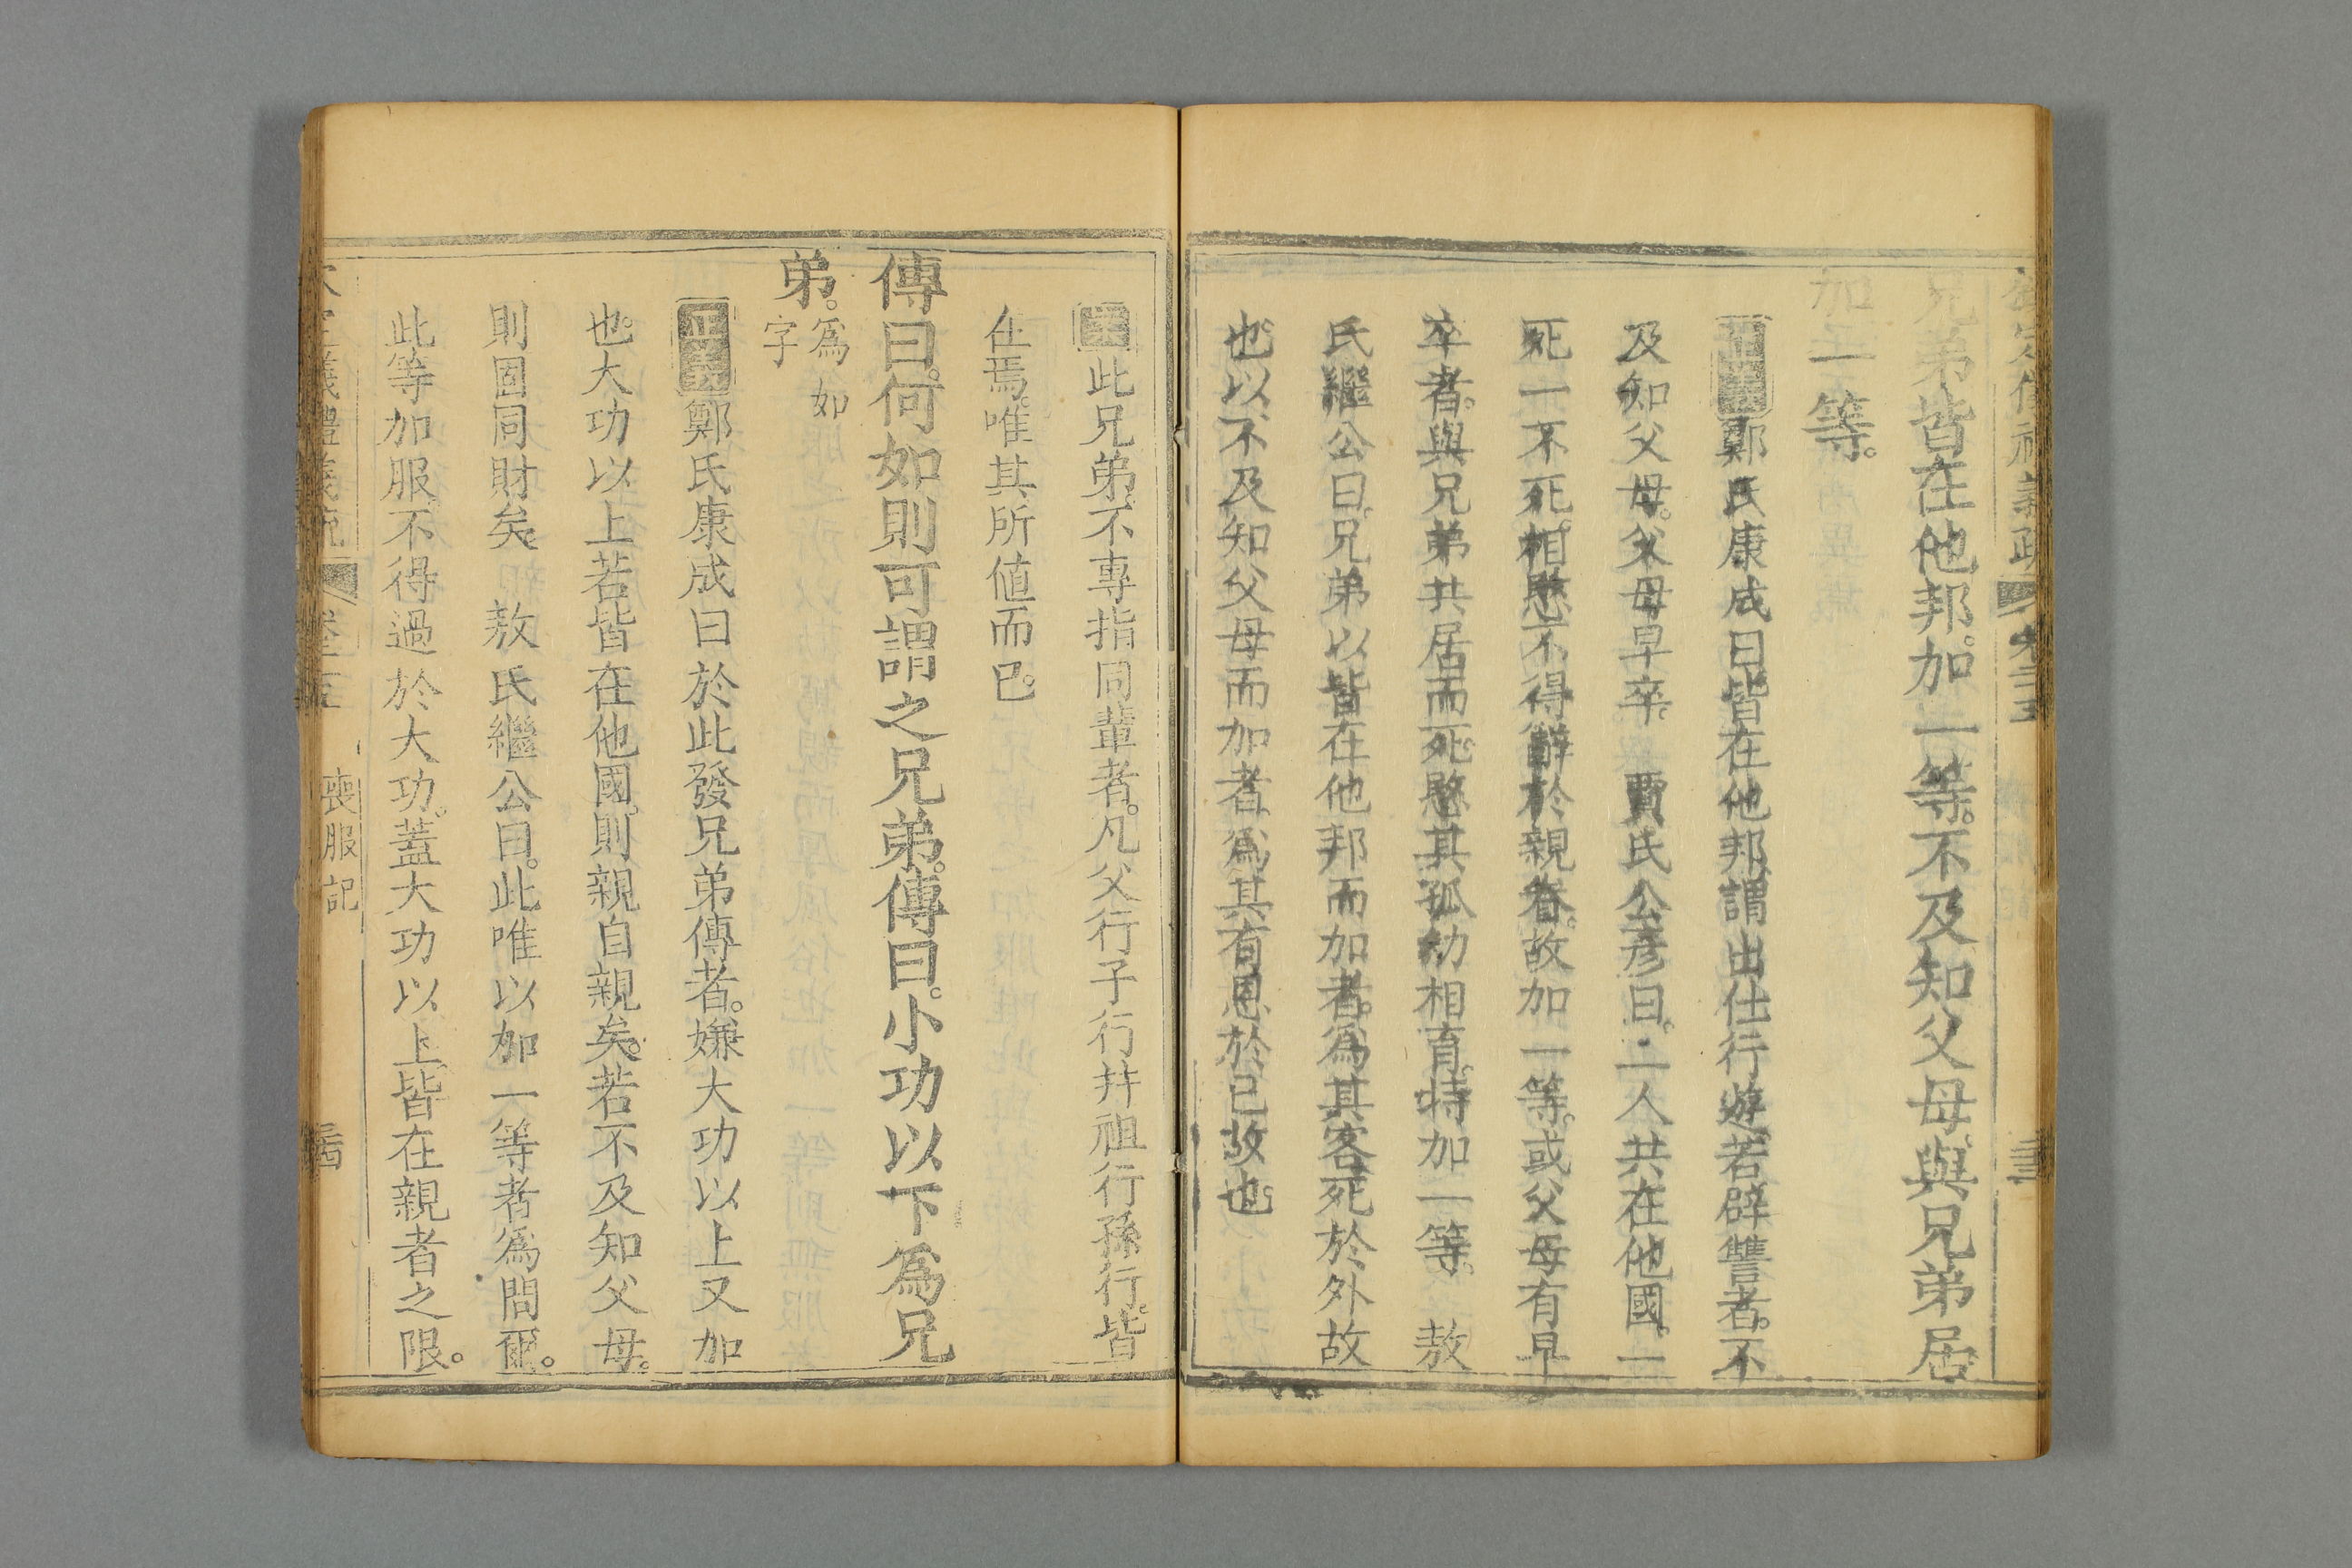 兄弟皆在他邦。加一等。不及知父母。與兄弟居
加一等。
正義鄭氏康成曰皆在他邦。謂出仕行遊。若辟讐者。不
及知父母。父母早卒。 賈氏公彦曰。二人共在他國。一
死一不死。相愍不得辭於親眷。故加一等。或父母有早
卒者。與兄弟共居而死。愍其孤幼相育。特加一等。 敖
氏繼公曰。兄弟以皆在他邦而加者。爲其客死於外故
也。以不及知父母而加者。爲其有恩於已故也。
此兄弟。不專指同輩者。凡父行子行幷祖行孫行。皆
在焉。唯其所値而已。
傳曰。何如則可謂之兄弟。傳曰。小功以下爲兄
弟。爲如
字
正義鄭氏康成曰於此發兄弟傳者。嫌大功以上又加
也。大功以上若皆在他國。則親自親矣。若不及知父母。
則固同財矣。 敖氏繼公曰。此唯以加一等者爲問爾。
此等加服。不得過於大功。蓋大功以上皆在親者之限。
喪服記